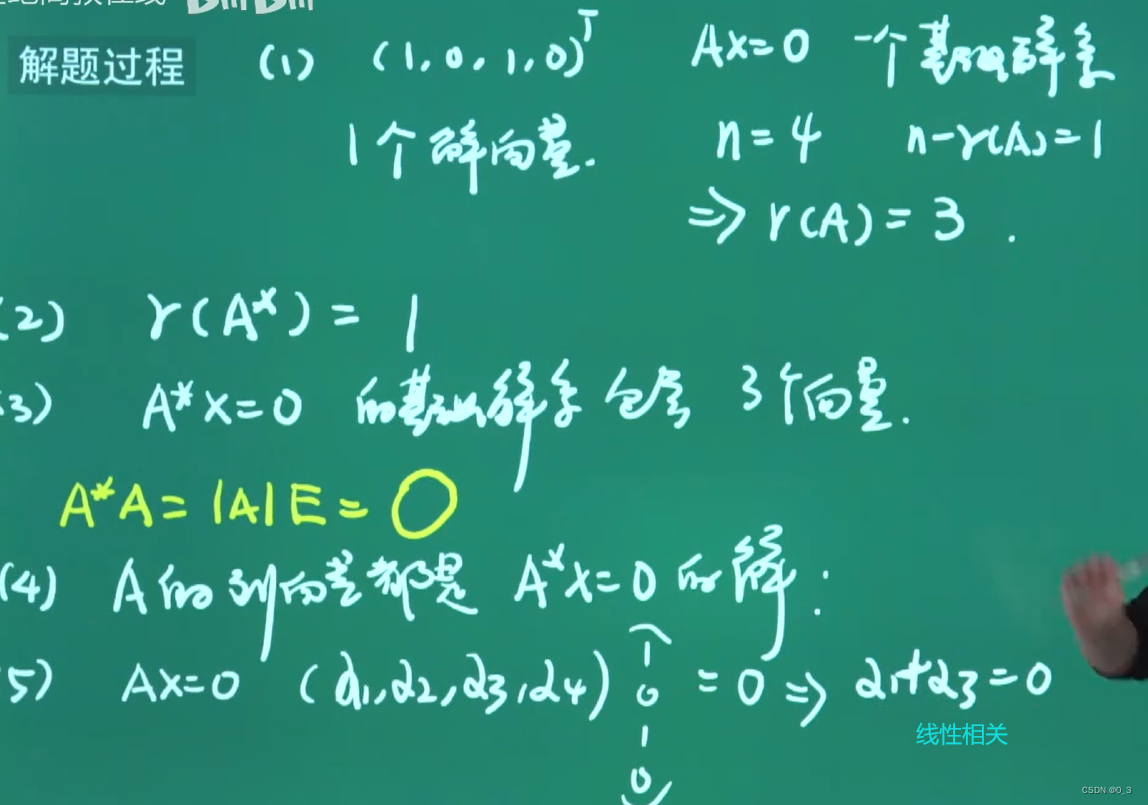 解题过程 (1) (1,0,1,0)^T Ax=0 一个基础解系
1个解向量. n=4 n-r(A)=1
⇒ r(A)=3.
(2) r(A*)=1
(3) A*x=0 的基础解系包含 3个向量.
A*A=|A|E=O
(4) A的列向量都是 A*x=0的解:
(5) Ax=0 (α1,α2,α3,α4) (1 0 1 0) =0⇒ α1+α3=0
线性相关
CSDN @0_3